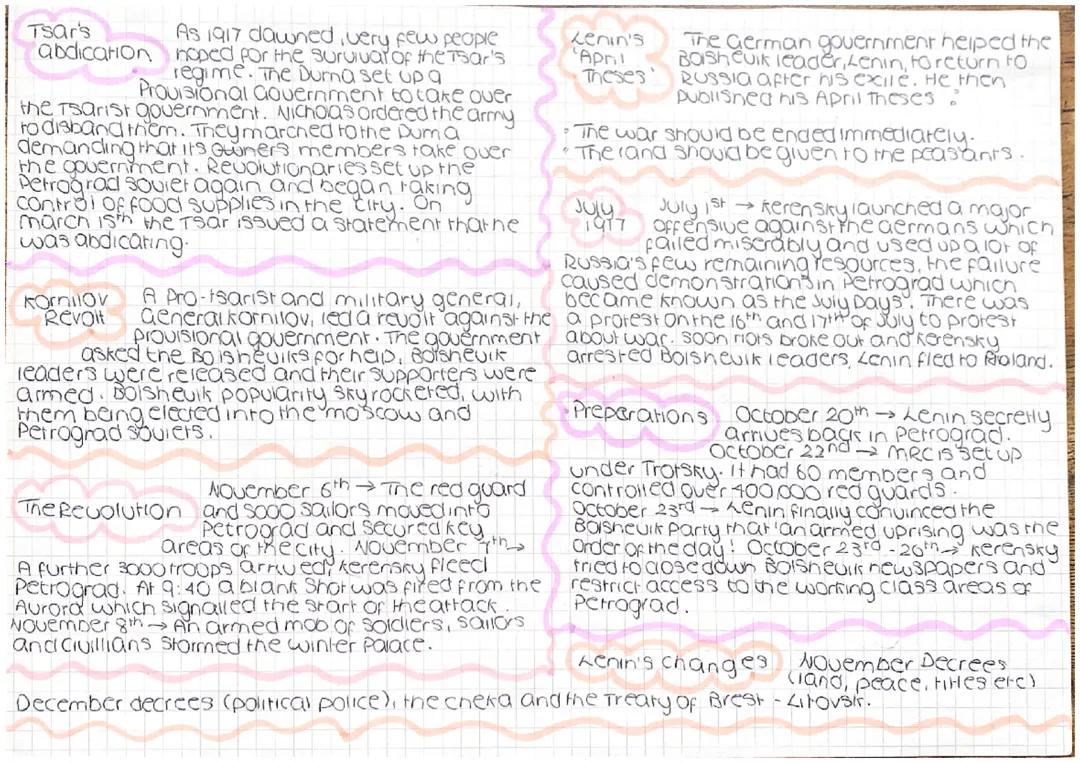 Tsar's
abdication
As 1917 dawned, very few people
hoped for the survival of the Tsar's
regime. The Duma set up a
Provisional Government to take over
the Tsarist government. Nicholas ordered the army
to disband them. They marched to the Duma
demanding that its members take over
the government. Revolutionaries set up the
Petrograd Soviet again and began taking
control of food supplies in the city. On
march 15th the Tsar issued a statement that he
was abdicating.
Kornilov
Revolt
A pro-tsarist and military general,
General Kornilov, led a revolt against the
provisional government. The government
asked the Bolsheviks for help. Bolshevik
leaders were released and their supporters were
armed. Bolshevik popularity skyrocketed, with
them being elected into the moscow and
Petrograd soviets.
The Revolution
November 6th → The red guard
and 5000 sailors moved into
Petrograd and secured key
areas of the city. November 7th →
A further 3000 troops arrived, Kerensky fleed
Petrograd. At 9:40 a blank shot was fired from the
Aurora which signalled the start of the attack.
November 8th → An armed mob of soldiers, sailors
and civillians stormed the winter Palace.
Lenin's
'April
Theses'
The German government helped the
Bolshevik leader, Lenin, to return to
Russia after his exile. He then
published his April Theses :
• The war should be ended immediately.
• The land should be given to the peasants.
July
1917
July 1st → Kerensky launched a major
offensive against the Germans which
failed miserably and used up a lot of
Russia's few remaining resources, the failure
caused demonstrations in Petrograd which
became known as the 'July Days'. There was
a protest on the 16th and 17th of July to protest
about war. Soon riots broke out and Kerensky
arrested Bolshevik leaders, Lenin fled to
Preparations
October 20th → Lenin secretly
arrives back in Petrograd.
October 22nd → MRC is set up
under Trotsky. It had 60 members and
controlled over 400,000 red guards.
October 23rd → Lenin finally convinced the
Bolshevik Party that 'an armed uprising was the
order of the day! October 23rd - 26th → Kerensky
tried to close down Bolshevik newspapers and
restrict access to the working class areas of
Petrograd.
Lenin's changes
November Decrees
(land, peace, titles etc)
December decrees (political police), the cheka and the Treaty of Brest - Litovsk.